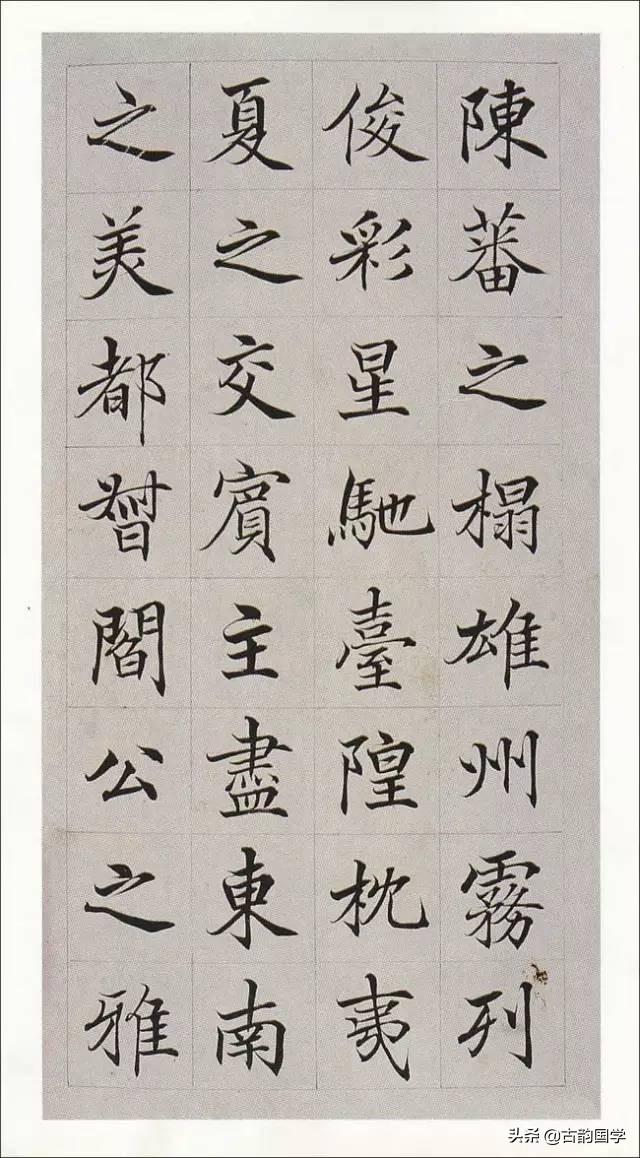 陳蕃之榻雄州霧列
俊彩星馳臺隍枕夷
夏之交賓主盡東南
之美都督閻公之雅
头条 @古韵国学